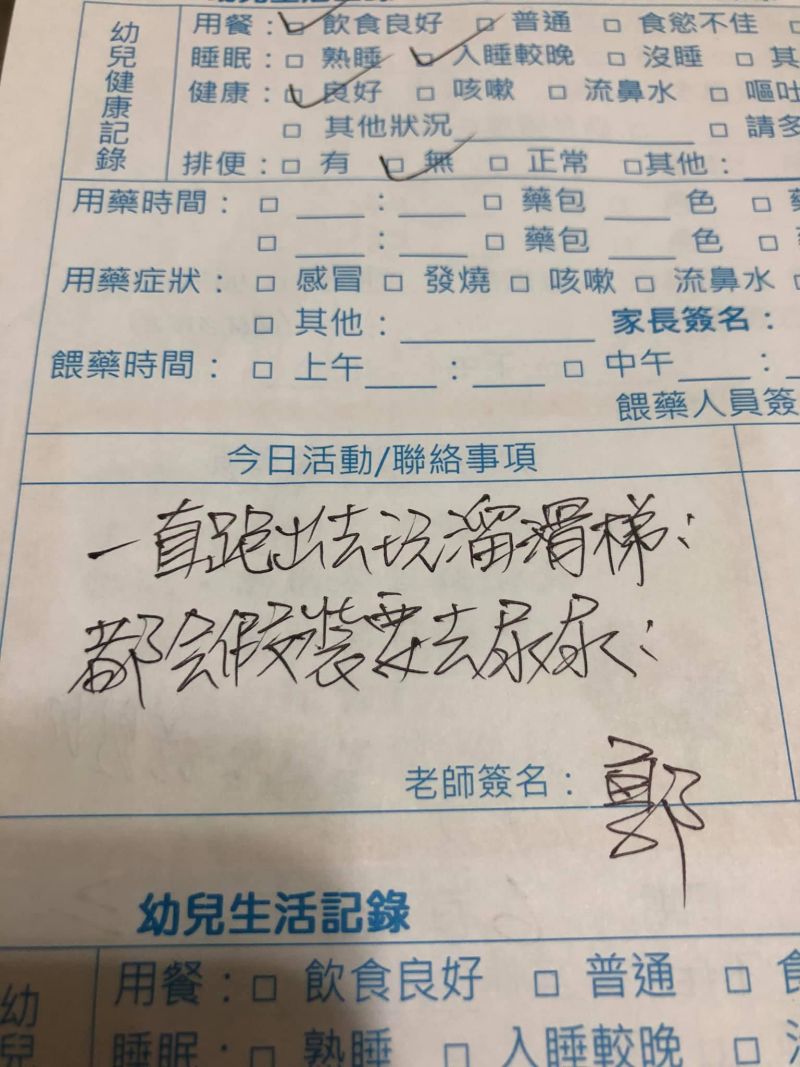 幼兒生活記錄
幼兒健康記錄
用餐：☐ 飲食良好 ☐ 普通 ☐ 食慾不佳 ☐
睡眠：☐ 熟睡 ☐ 入睡較晚 ☐ 沒睡 ☐ 其
健康：☐ 良好 ☐ 咳嗽 ☐ 流鼻水 ☐ 嘔吐
☐ 其他狀況 ☐ 請多
排便：☐ 有 ☐ 無 ☐ 正常 ☐其他：
用藥時間：☐ ： ☐ 藥包 色 ☐
☐ ： ☐ 藥包 色 ☐
用藥症狀：☐ 感冒 ☐ 發燒 ☐ 咳嗽 ☐ 流鼻水 ☐
☐ 其他： 家長簽名：
餵藥時間：☐ 上午 ： ☐ 中午 ：
餵藥人員簽
今日活動/聯絡事項
一直跑出去玩溜滑梯；
都會假裝要去尿尿；
老師簽名：郭
幼兒生活記錄
幼兒
用餐：☐ 飲食良好 ☐ 普通 ☐
睡眠：☐ 熟睡 ☐ 入睡較晚 ☐